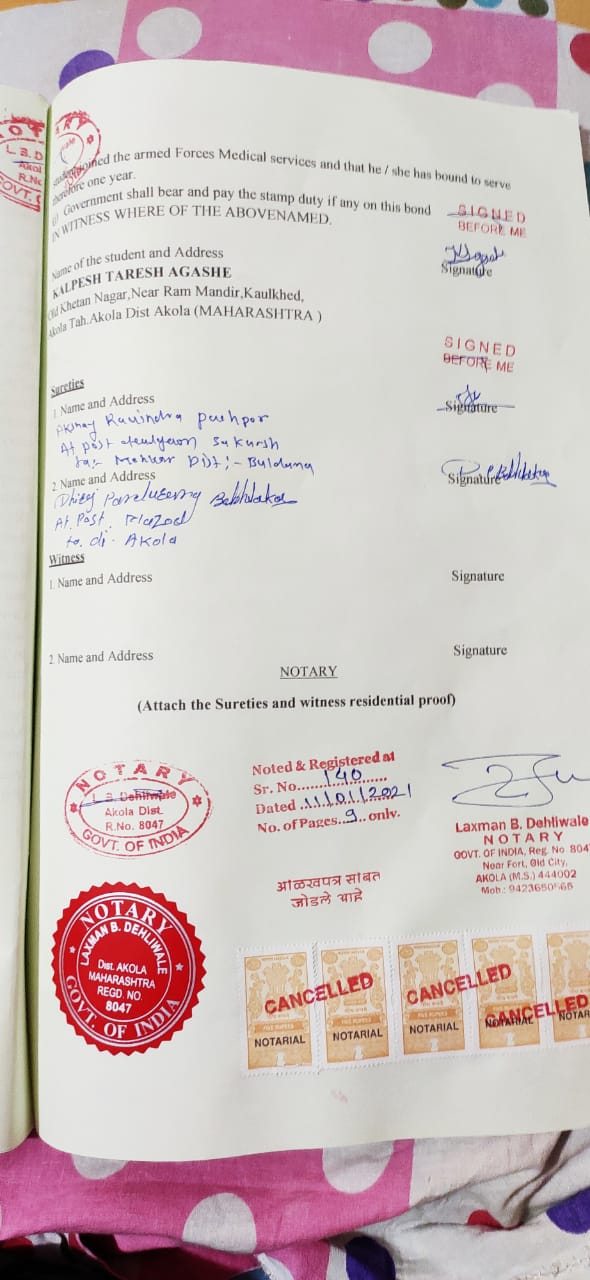 L. B. D
Akol
R.No
GOVT. O
student joined the armed Forces Medical services and that he / she has bound to serve
therefore one year.
Government shall bear and pay the stamp duty if any on this bond
IN WITNESS WHERE OF THE ABOVENAMED.
SIGNED
BEFORE ME
Name of the student and Address
Signature
KALPESH TARESH AGASHE
Old Khetan Nagar,Near Ram Mandir,Kaulkhed,
Akola Tah.Akola Dist Akola (MAHARASHTRA )
SIGNED
BEFORE ME
Sureties
1. Name and Address
Signature
Akshay Ravindra
At post
Dist :-
2. Name and Address
Signature
At. Post.
Akola
Witness
1. Name and Address
Signature
2. Name and Address
Signature
NOTARY
(Attach the Sureties and witness residential proof)
NOTARY
L. B. Dehliwale
Akola Dist.
R.No. 8047
GOVT. OF INDIA
Noted & Registered at
Sr. No. 140
Dated 11/01/2021
No. of Pages 9 only.
Laxman B. Dehliwale
NOTARY
GOVT. OF INDIA, Reg. No. 804
Near Fort, Old City,
AKOLA (M.S.) 444002
Mob.: 94236
ओळखपत्र सोबत
जोडले आहे
NOTARY
LAXMAN B. DEHLIWALE
Dist. AKOLA
MAHARASHTRA
REGD. NO.
8047
GOVT. OF INDIA
CANCELLED CANCELLED CANCELLED
FIVE RUPEES
NOTARIAL NOTARIAL NOTARIAL NOTARIAL NOTAR